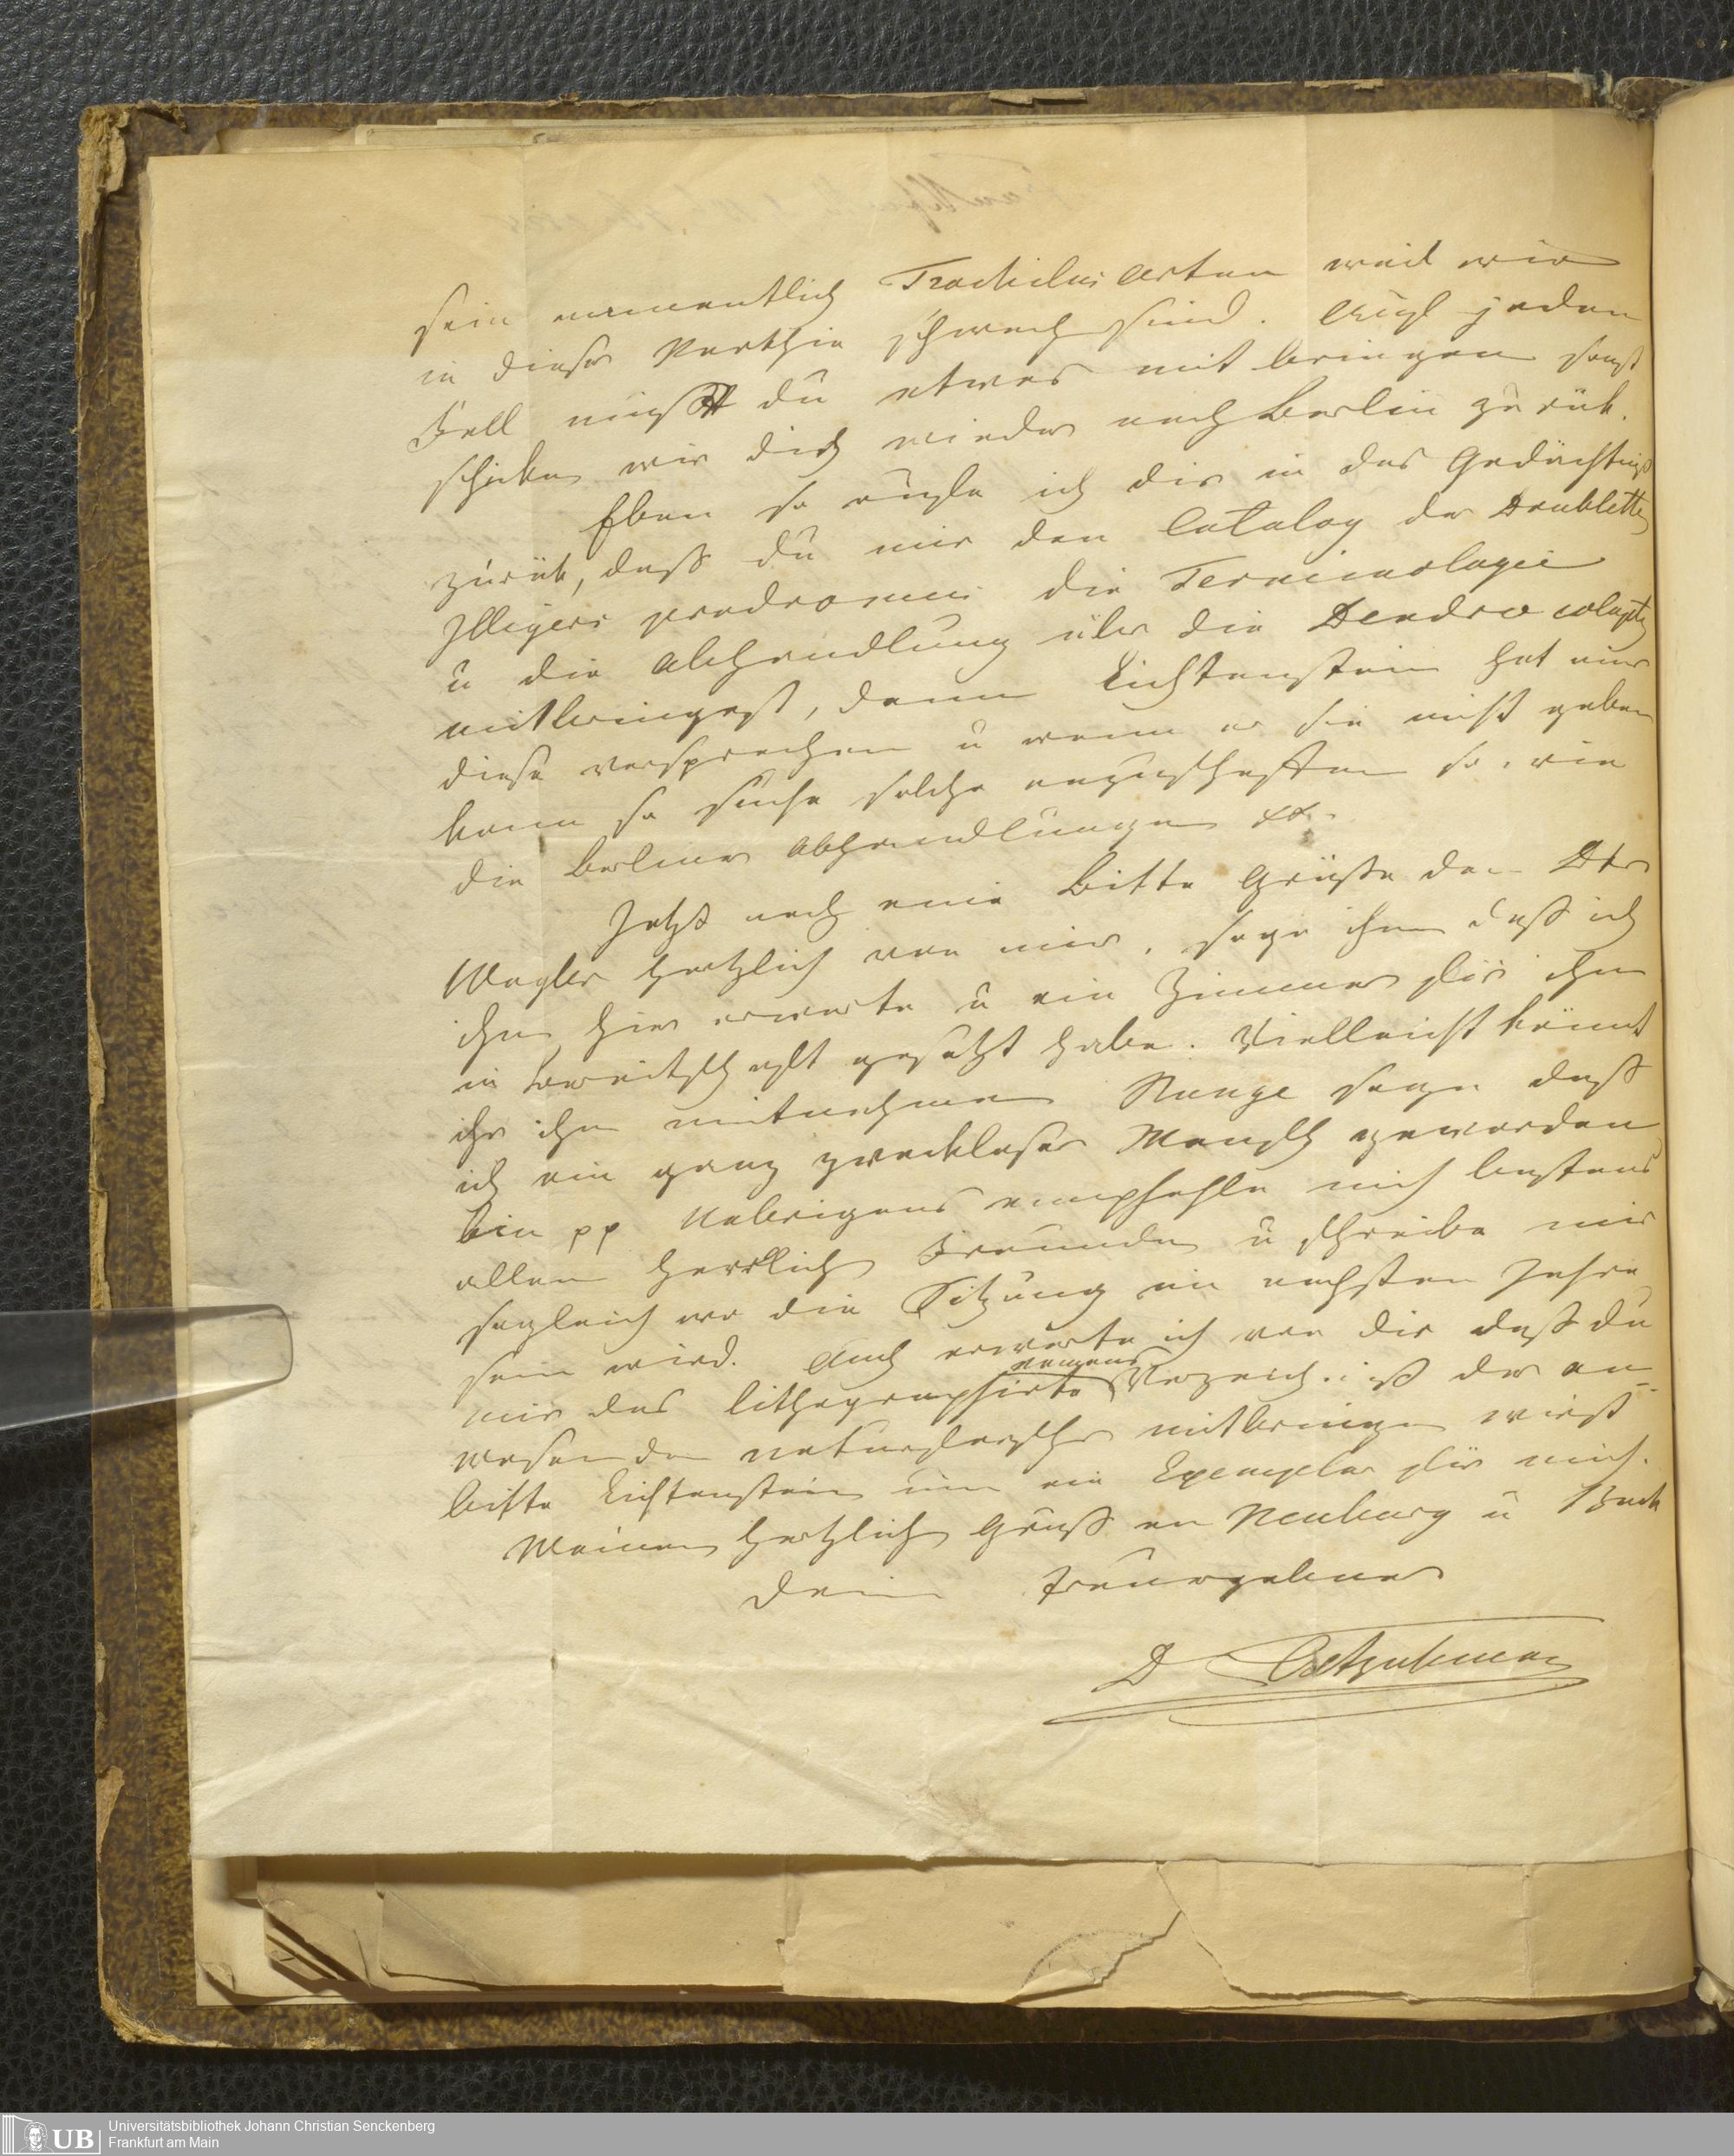 sein namentlich Trochilus arten weil wir
in dieser Parthie schwach sind. Auf jeden
Fall mußt du etwas mit bringen sonst
schicken wir dich wieder nach Berlin zurük.
Eben so rufe ich dir in das Gedächtniß
zurük, daß du mir den Catalog der Doubletten
Illigers prodromus die Terminologie
u die Abhandlung über die Dendrocolaptes
mitbringest, denn Lichtenstein hat mir
diese versprochen u wenn er sie nicht geben
kann so suche solche anzuschaffen so wie
die Berliner Abhandlungen
Jetzt noch eine Bitte Grüße den Dtr
Wagler herzlich von mir, sage ihm daß ich
ihn hier erwarte u ein Zimmer für ihn
in bereitschaft gesetzt habe. Vielleicht könnt
ihr ihn mitnehmen Runge sage daß
ich ein ganz zweckloser Mensch geworden
bin pp Uebrigens empfehle mich bestens
allen Freunden u schreibe mir
sogleich wo die Sitzung im nechsten Jahre
sein wird. Auch erwarte ich von dir daß du
mir das lithographirte Namens Verzeichniß der an-
wesenden naturforscher mitbringen wirst
bitte Lichtenstein um ein Exemplar für mich.
Meinen herzlichen Gruß an Neuburg u
Dein treuergebener
D Cretzschmar
Universitätsbibliothek Johann Christian Senckenberg
Frankfurt am Main
UB